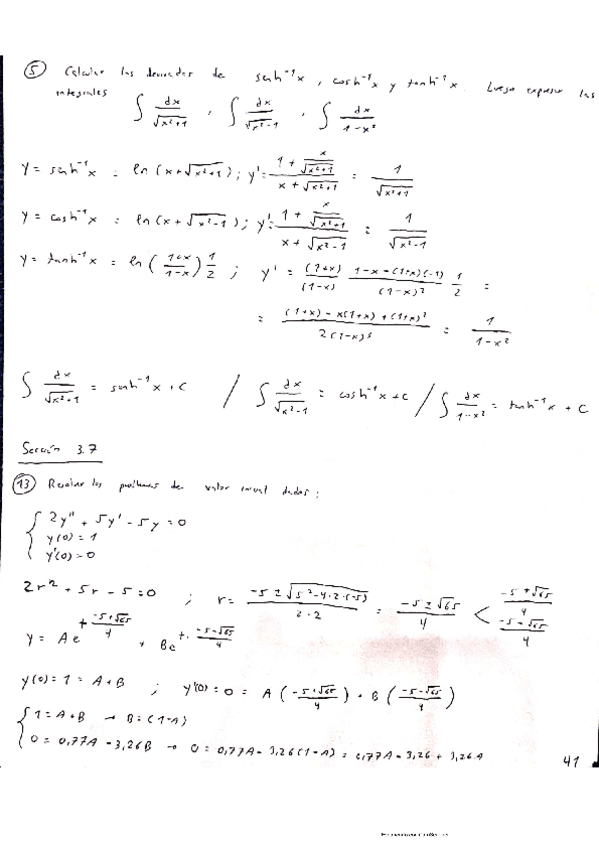 ⑤ Calcular las derivadas de senh⁻¹x, cosh⁻¹x y tanh⁻¹x. Luego expresar las
integrales ∫ dx/√(x²+1) , ∫ dx/√(x²-1) , ∫ dx/(1-x²)
y = senh⁻¹x = ln(x+√(x²+1)) ; y' = (1 + x/√(x²+1))/(x+√(x²+1)) = 1/√(x²+1)
y = cosh⁻¹x = ln(x+√(x²-1)) ; y' = (1 + x/√(x²+1))/(x+√(x²-1)) = 1/√(x²-1)
y = tanh⁻¹x = ln((1+x)/(1-x)) 1/2 ; y' = (1+x)/(1-x) (1-x-(1+x)(-1))/(1-x)² 1/2 =
= ((1+x) - x(1+x) + (1+x)²)/(2(1-x)³) = 1/(1-x²)
∫ dx/√(x²+1) = senh⁻¹x + C / ∫ dx/√(x²-1) = cosh⁻¹x + C / ∫ dx/(1-x²) = tanh⁻¹x + C
Sección 3.7
⑬ Resolver los problemas de valor inicial dados:
{ 2y'' + 5y' - 5y = 0
y(0) = 1
y'(0) = 0
2r² + 5r - 5 = 0 ; r = (-5 ± √(5²-4·2·(-5)))/(2·2) = (-5 ± √65)/4 < (-5+√65)/4 (-5-√65)/4
y = Ae^(t·(-5+√65)/4) + Be^(t·(-5-√65)/4)
y(0) = 1 = A + B ; y'(0) = 0 = A((-5+√65)/4) + B((-5-√65)/4)
{ 1 = A + B → B = (1-A)
0 = 0,77A - 3,26B → 0 = 0,77A - 3,26(1-A) = 0,77A - 3,26 + 3,26A
41